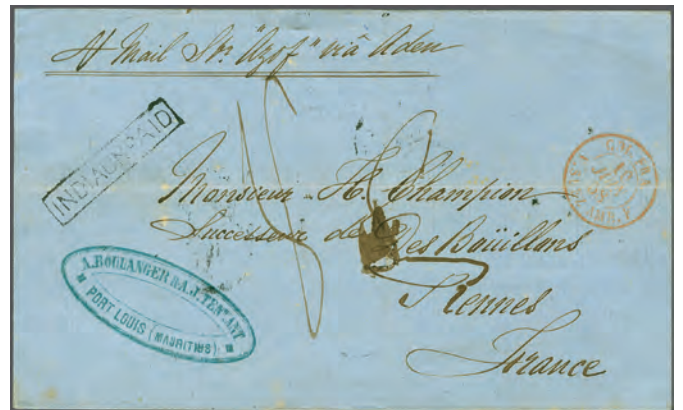 Mail Str. "Azof" via Aden
INDIA UNPAID
Monsieur H. Champion
Successeur de Des Boüillons
Rennes
France
A. BOULANGER & A.J. TENNANT
PORT LOUIS (MAURITIUS)